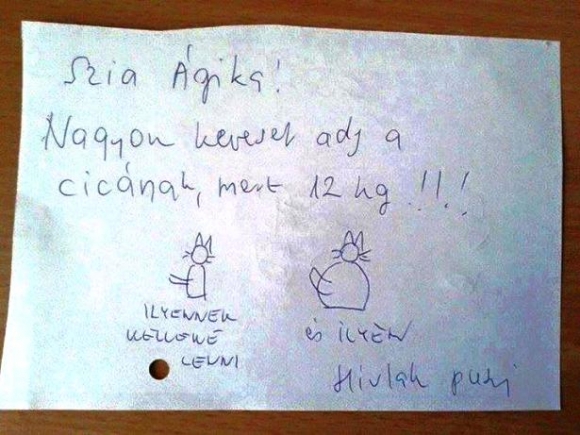 Szia Ágika!
Nagyon keveset adj a
cicának, mert 12 kg !!.!
ILYENNEK
KELLENE
LENNI
és ILYEN
Hívlak puszi